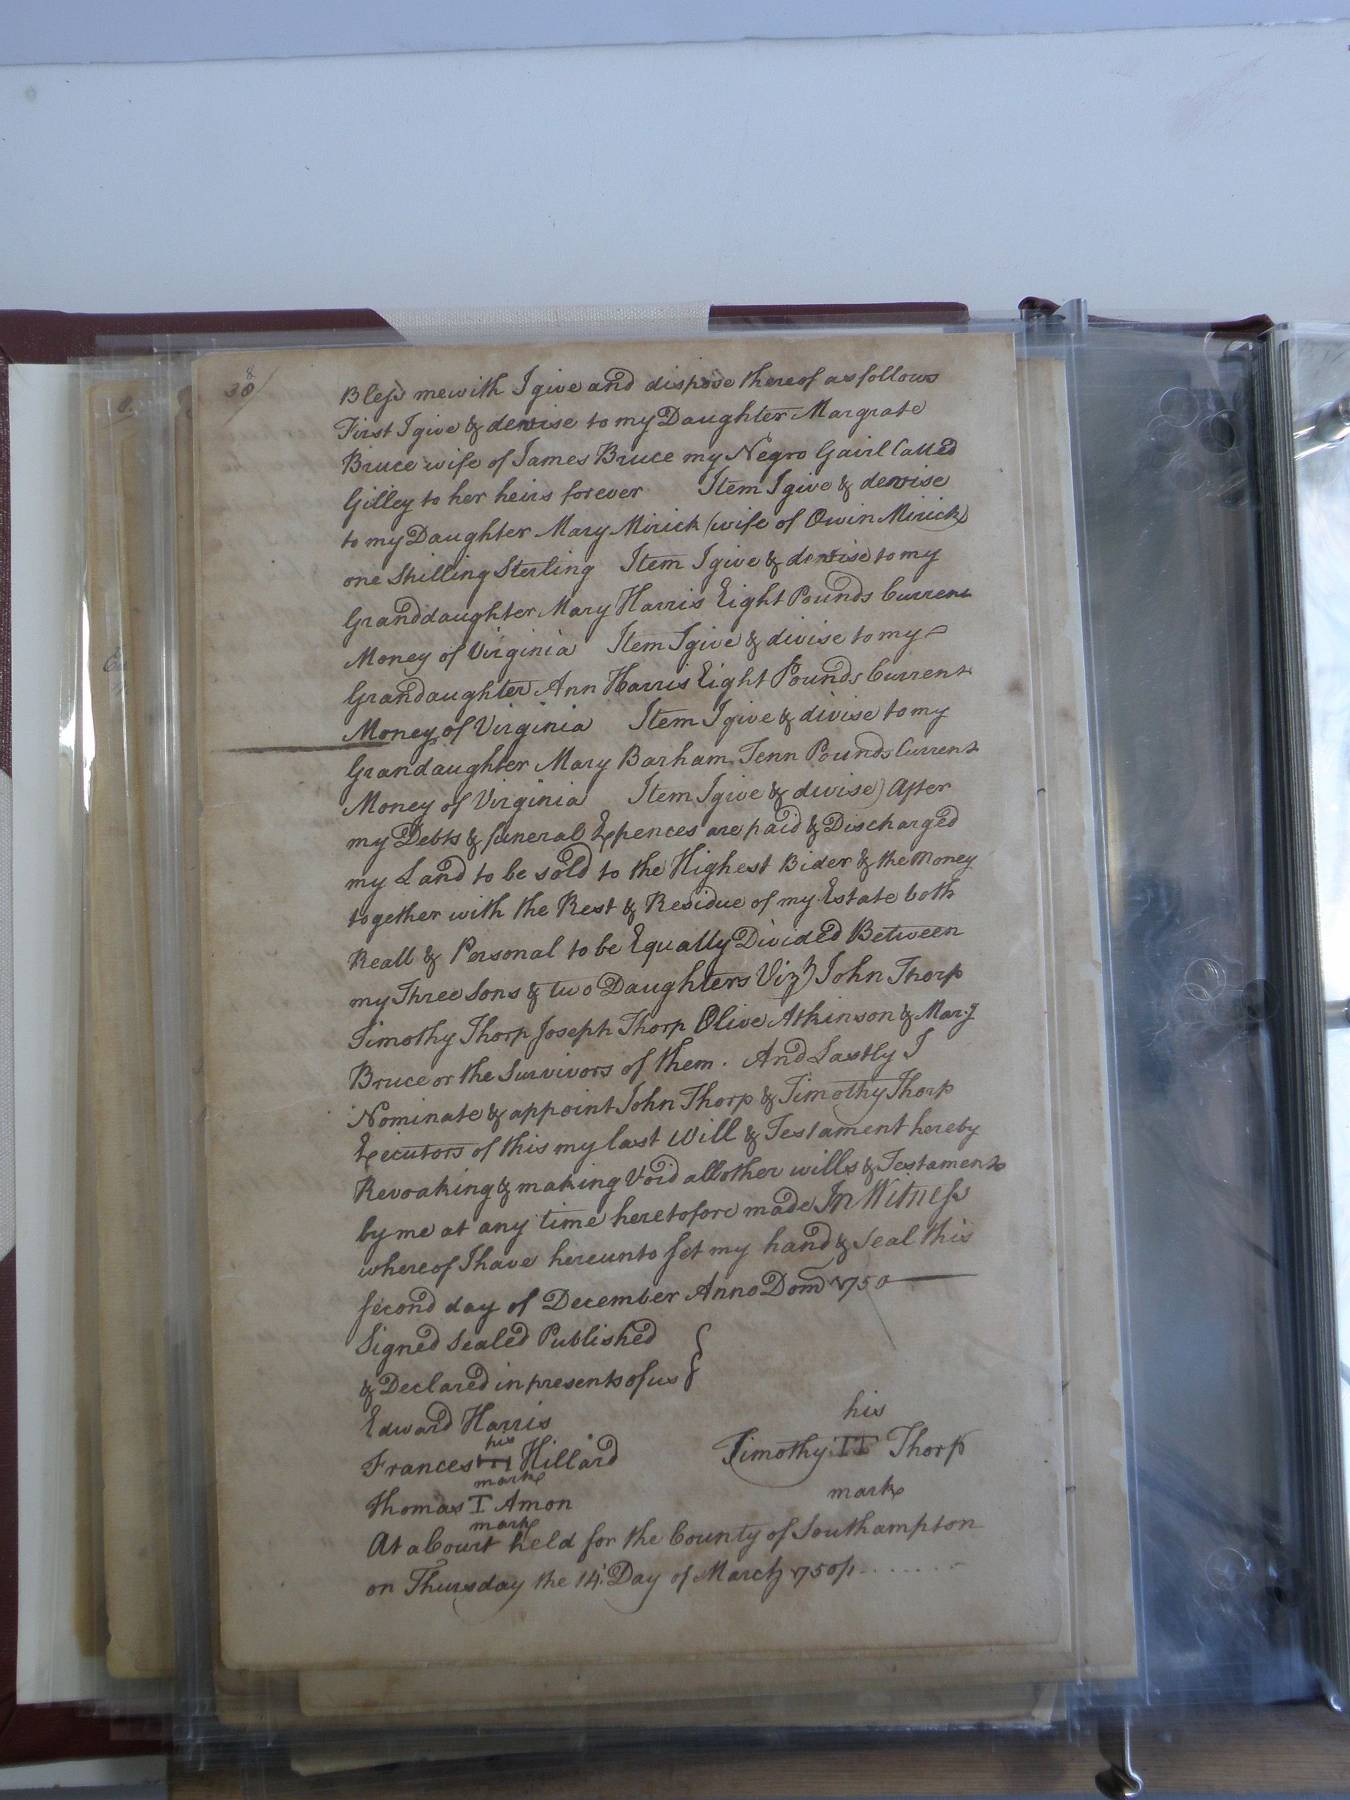 38
Bless mewith I give and dispose thereof as follows
First I give & devise to my Daughter Margrate
Bruce wife of James Bruce my Negro Gairl Called
Gilley to her heirs forever Item I give & devise
to my Daughter Mary Mirick (wife of Owin Mirick)
one Shilling Sterling Item I give & devise to my
Granddaughter Mary Harris Eight Pounds Current
Money of Virginia Item I give & divise to my
Grandaughter Ann Harris Eight Pounds Current
Money of Virginia Item I give & divise to my
Grandaughter Mary Barham Tenn Pounds Current
Money of Virginia Item I give & divise) After
my Debts & funeral Expences are paid & Discharged
my Land to be sold to the Highest Bider & the Money
together with the Rest & Residue of my Estate both
Reall & Personal to be Equally Divided Between
my Three Sons & two Daughters Vizt) John Thorp
Timothy Thorp Joseph Thorp Olive Atkinson & Mary
Bruce or the Survivors of them. And Lastly I
Nominate & appoint John Thorp & Timothy Thorp
Executors of this my last Will & Testament hereby
Revoaking & making Void all other wills & Testaments
by me at any time heretofore made In Witness
whereof I have hereunto set my hand & Seal this
second day of December Anno Dom 1750
Signed Sealed Published
& Declared in presents of us
Edward Harris
his
his
Frances Hillard
Timothy TT Thorp
mark
mark
Thomas T Amon
mark
At a Court held for the County of Southampton
on Thursday the 14 Day of March 1750/1